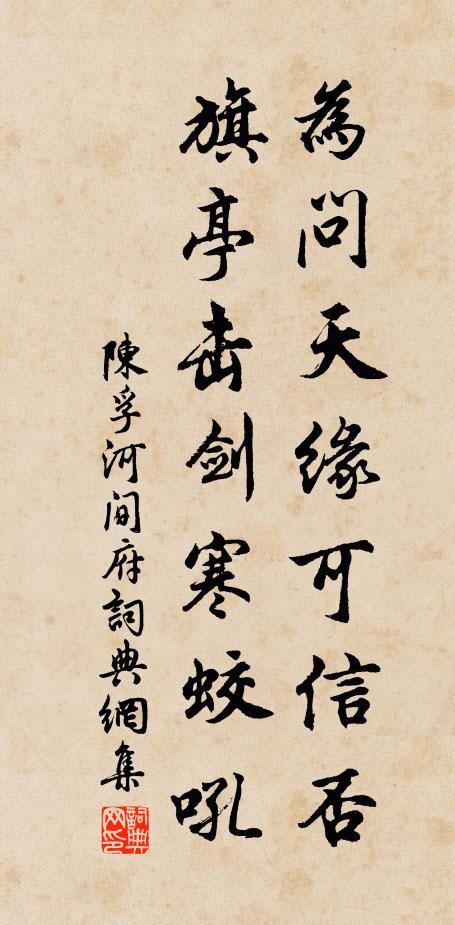 為問天緣可信否
旗亭击剑寒蛟吼
陳孚河間府詞典網集
詞典网印